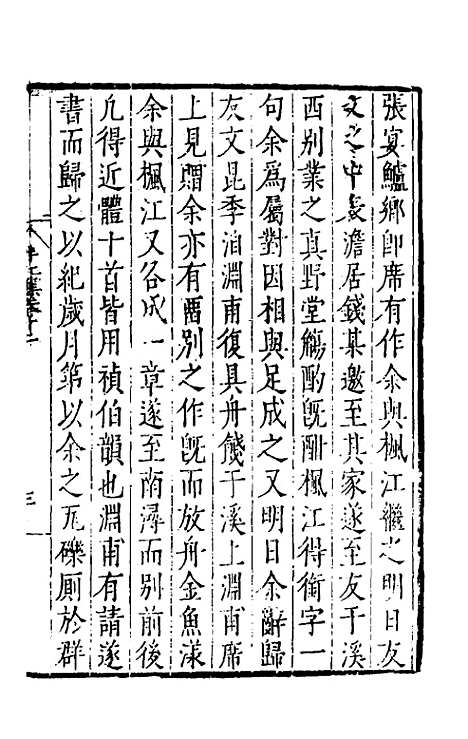 張宴鱸鄉即席有作余與楓江繼之明日友
文之中表澹居錢某邀至其家遂至友于溪
西別業之真野堂觴酌既酣楓江得銜字一
句余為屬對因相與足成之又明日余辭歸
友文昆季洎淵甫復具舟餞于溪上淵甫席
上見贈余亦有畱別之作既而放舟金魚漾
余與楓江又各成一章遂至南潯而別前後
凡得近體十首皆用禎伯韻也淵甫有請遂
書而歸之以紀歲月第以余之瓦礫厠於群
三